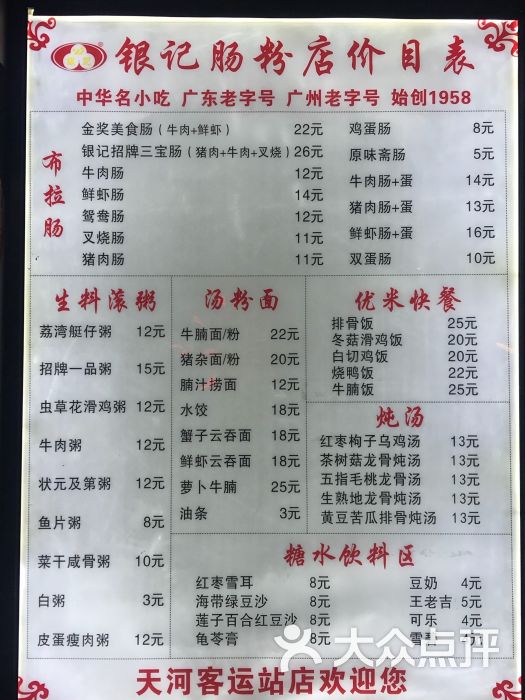 银记肠粉店价目表
中华名小吃 广东老字号 广州老字号 始创1958
布拉肠
金奖美食肠（牛肉+鲜虾） 22元
银记招牌三宝肠（猪肉+牛肉+叉烧）26元
牛肉肠 12元
鲜虾肠 14元
鸳鸯肠 12元
叉烧肠 11元
猪肉肠 11元
鸡蛋肠 8元
原味斋肠 5元
牛肉肠+蛋 14元
猪肉肠+蛋 13元
鲜虾肠+蛋 16元
双蛋肠 10元
生料滚粥
荔湾艇仔粥 12元
招牌一品粥 15元
虫草花滑鸡粥 12元
牛肉粥 12元
状元及第粥 12元
鱼片粥 8元
菜干咸骨粥 10元
白粥 3元
皮蛋瘦肉粥 12元
汤粉面
牛腩面/粉 22元
猪杂面/粉 20元
腩汁捞面 12元
水饺 18元
蟹子云吞面 18元
鲜虾云吞面 18元
萝卜牛腩 25元
油条 3元
优米快餐
排骨饭 25元
冬菇滑鸡饭 20元
白切鸡饭 20元
烧鸭饭 22元
牛腩饭 25元
炖汤
红枣枸子乌鸡汤 13元
茶树菇龙骨炖汤 13元
五指毛桃龙骨汤 13元
生熟地龙骨炖汤 13元
黄豆苦瓜排骨炖汤 13元
糖水饮料区
红枣雪耳 8元
海带绿豆沙 8元
莲子百合红豆沙 8元
龟苓膏 8元
豆奶 4元
王老吉 5元
可乐 4元
雪碧 元
大众点评
天河客运站店欢迎您